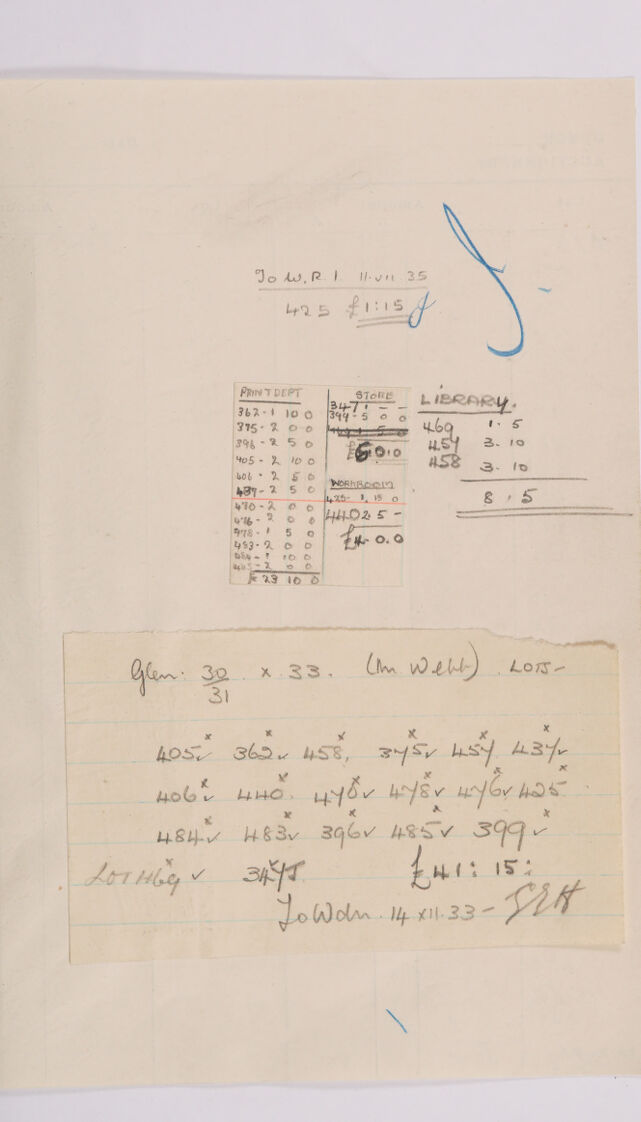 To W.R.I 11.VII.35
425 £1:15
PRINT DEPT
362-1 10 0
375-2 0 0
396-2 5 0
405-2 10 0
406-2 5 0
437-2 5 0
470-2 0 0
476-2 0 0
478-1 5 0
483-2 0 0
484-1 10 0
485-2 0 0
£23 10 0
STORE
347 1 - -
399-5 0 0
£6.0.0
WORKROOM
425-1.15 0
440 2 5 -
£4.0.0
LIBRARY.
469 1.5
457 3.10
458 3.10
8.5
Glen. 30/31 x 33. (Mr Webb) LOTS-
405✓ 362✓ 458, 375✓ 457 437✓
406✓ 440. 470✓ 478✓ 476✓ 425
484✓ 483✓ 396✓ 485✓ 399✓
LOT 469 ✓ 347 £41:15:
To Wdn. 14 XII.33-